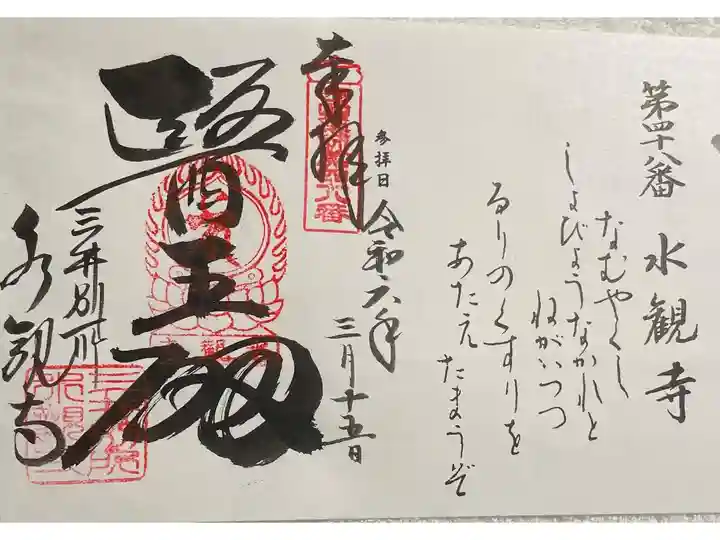 第四十八番 水観寺
なむやくし
しょびょうなかれと
ねがいつつ
るりのくすりを
あたえ たまうぞ
参拝日 令和六年
三月十五日
奉拝
醫王殿
三井別所
水観寺